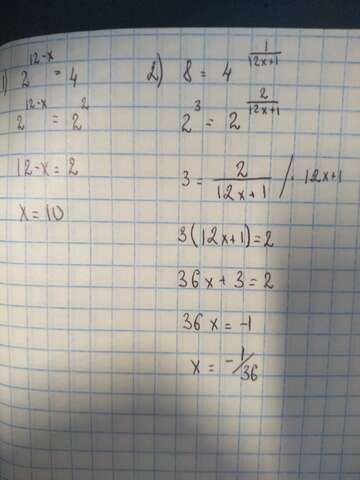 1) 2^(12-x) = 4
2^(12-x) = 2^2
12-x = 2
x = 10
2) 8 = 4^(1/(12x+1))
2^3 = 2^(2/(12x+1))
3 = 2/(12x+1) / · 12x+1
3(12x+1) = 2
36x + 3 = 2
36x = -1
x = -1/36